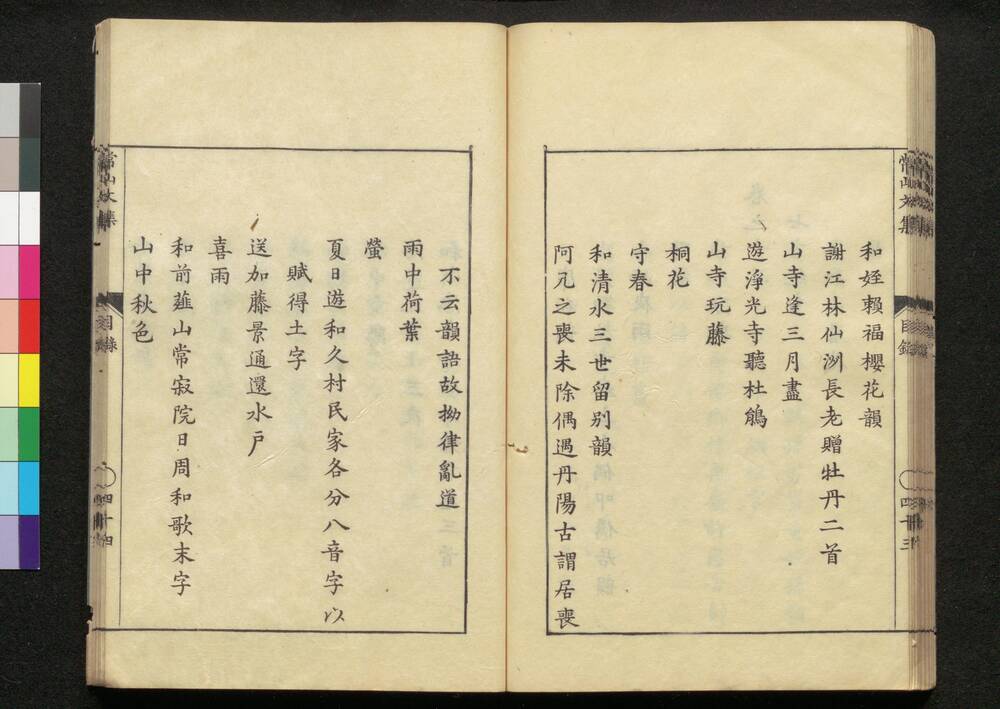 常山文集
目録
四十三
和姪賴福櫻花韻
謝江林仙洲長老贈牡丹二首
山寺逢三月盡
遊淨光寺聽杜鵑
山寺玩藤
桐花
守春
和清水三世留別韻
阿兄之喪未除偶過丹陽古謂居喪
不云韻語故拗律亂道
雨中荷葉
螢
夏日遊和久村民家各分八音字以
賦得土字
送加藤景通還水戶
喜雨
和前韮山常寂院日周和歌末字
山中秋色
常山文集
目録
四十四